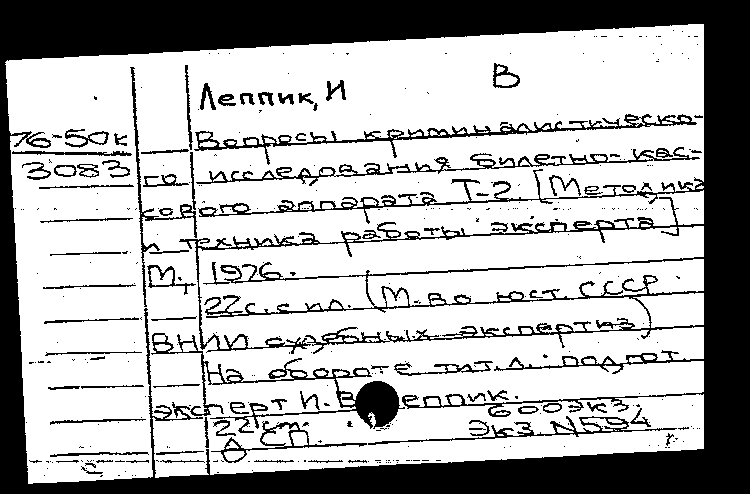 Леппик, И В
76-50к Вопросы криминалистическо-
3083 го исследования билетно-кас-
сового аппарата Т-2. [Методика
и техника работы эксперта]
М., 1976.
22с. с ил. (М-во юст. СССР.
ВНИИ судебных экспертиз)
На обороте тит. л.: подгот.
эксперт И. В. еппик.
22 см. 600экз.
ДСП. Экз. N594
с г.